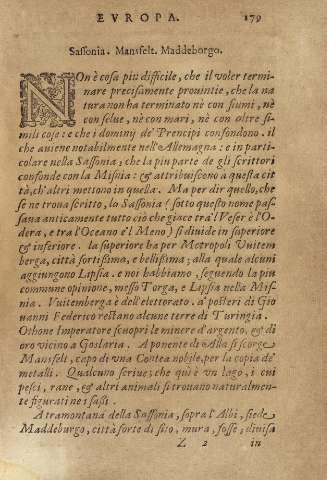 EVROPA. 179
Sassonia. Mansfelt. Maddeborgo.
NOn è cosa piu difficile, che il voler termi-
nare precisamente prouintie, che la na
tura non ha terminato nè con fiumi, nè
con selue, nè con mari, nè con oltre si-
mili cose: e che i dominÿ de' Prencipi confondono. il
che auiene notabilmente nell'Allemagna: e in parti-
colare nella Sassonia; che la piu parte de gli scrittori
confonde con la Misnia: & attribuiscono a questa cit
tà, ch'altri mettono in quella. Ma per dir quello, che
se ne troua scritto, la Sassonia (sotto questo nome pas-
saua anticamente tutto ciò che giace tra'l Veser è l'O-
dera, e tra l'Oceano è'l Meno) si diuide in superiore
& inferiore. la superiore ha per Metropoli Vuitem-
berga, città fortissima, e bellissima; alla quale alcuni
aggiungono Lapsia. e noi habbiamo, seguendo la piu
commune opinione, messo Torga, e Lapsia nella Mis-
nia. Vuitemberga è dell'elettorato. a' posteri di Gio
uanni Federico restano alcune terre di Turingia.
Othone Imperatore scuoprì le minere d'argento, & di
oro vicino a Goslaria. A ponente di Alla si scorge
Mansfelt, capo di vna Contea nobile, per la copia de'
metalli. Qualcuno scriue; che quì è vn lago, i cui
pesci, rane, & altri animali si trouano naturalmen-
te figurati ne i sassi.
A tramontana della Sassonia, sopra l'Albi, siede
Maddeburgo, città forte di sito, mura, fosse; diuisa
Z 2 in